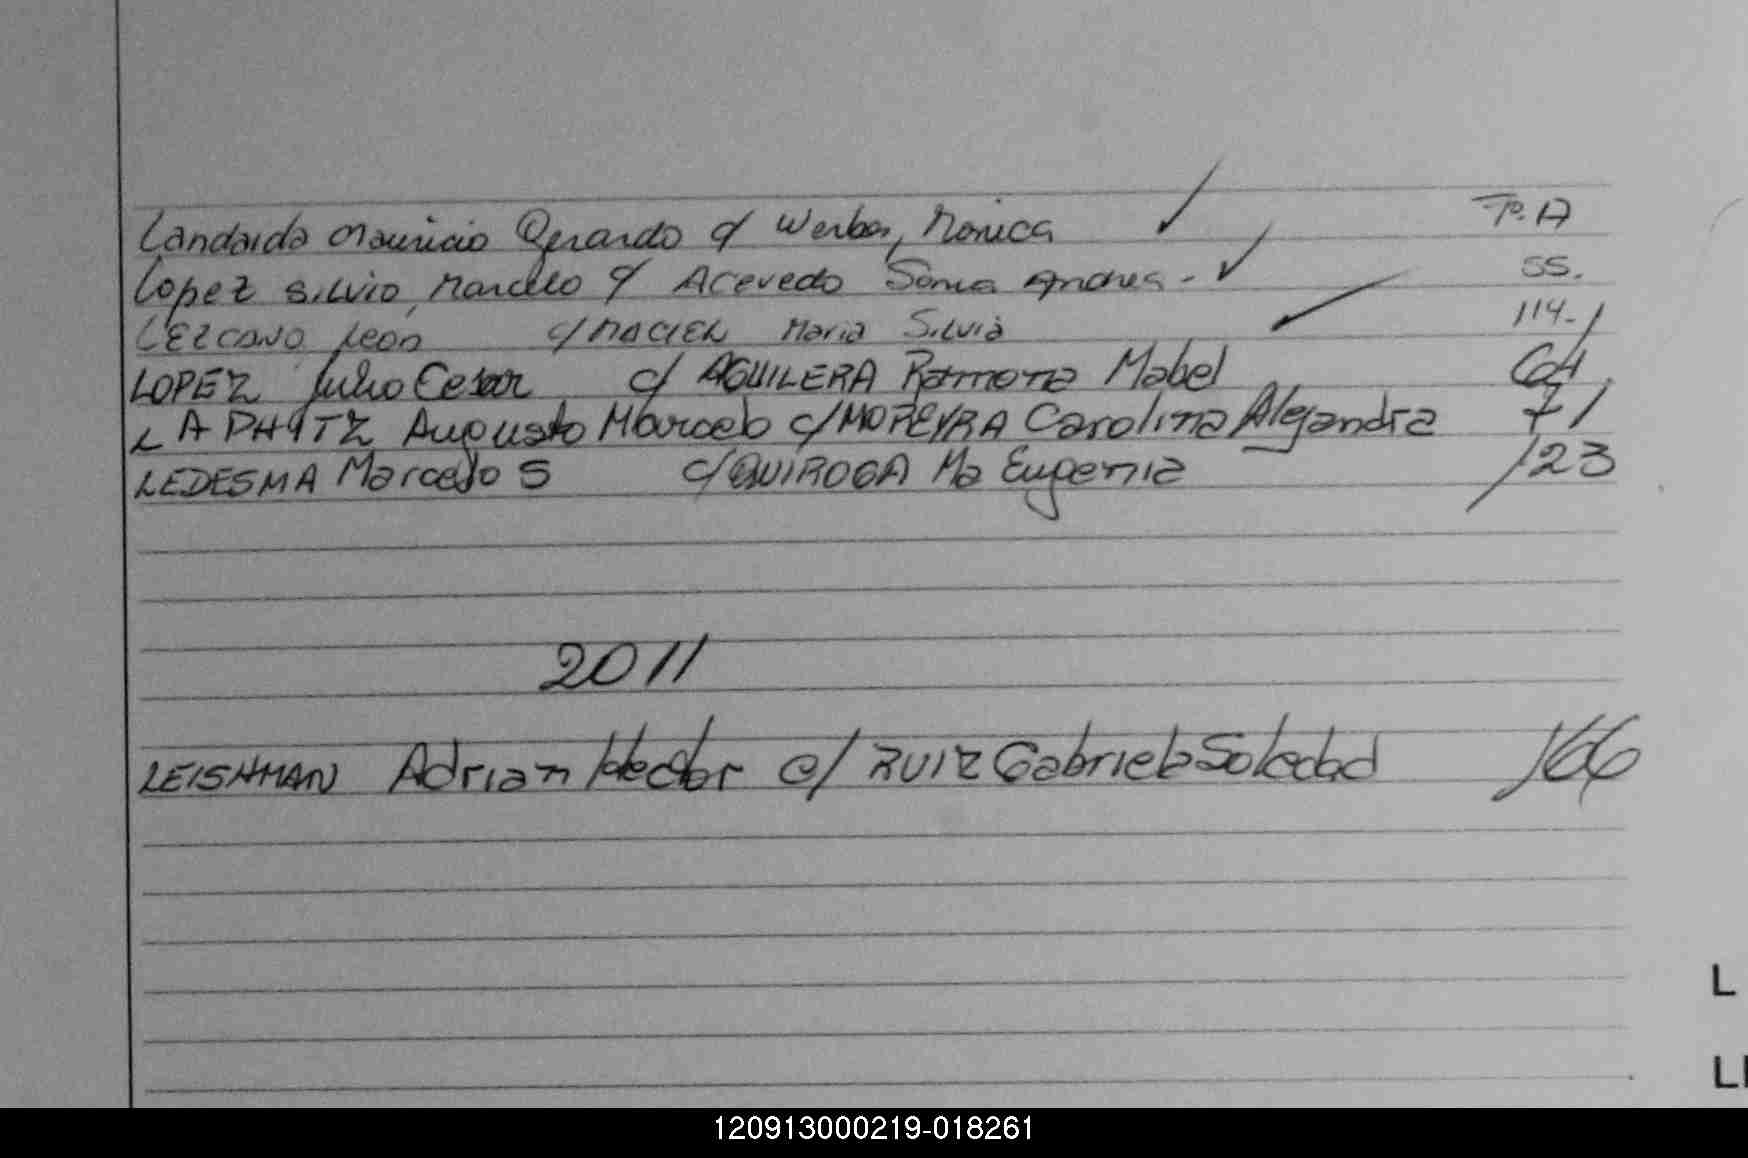 Landaida Mauricio Gerardo c/ Werber, Monica Tº. A
Lopez Silvio Marcelo c/ Acevedo Sonia Andrea - 55.
LEZCANO León c/ MACIEL Maria Silvia 114-
LOPEZ Julio Cesar c/ AGUILERA Ramona Mabel 64
LAPHITZ Augusto Marcelo c/ MOREYRA Carolina Alejandra 71
LEDESMA Marcelo S c/ QUIROGA Ma Eugenia 123
2011
LEISHMAN Adrian Hector c/ RUIZ Gabriela Soledad 166
L
LI
120913000219-018261